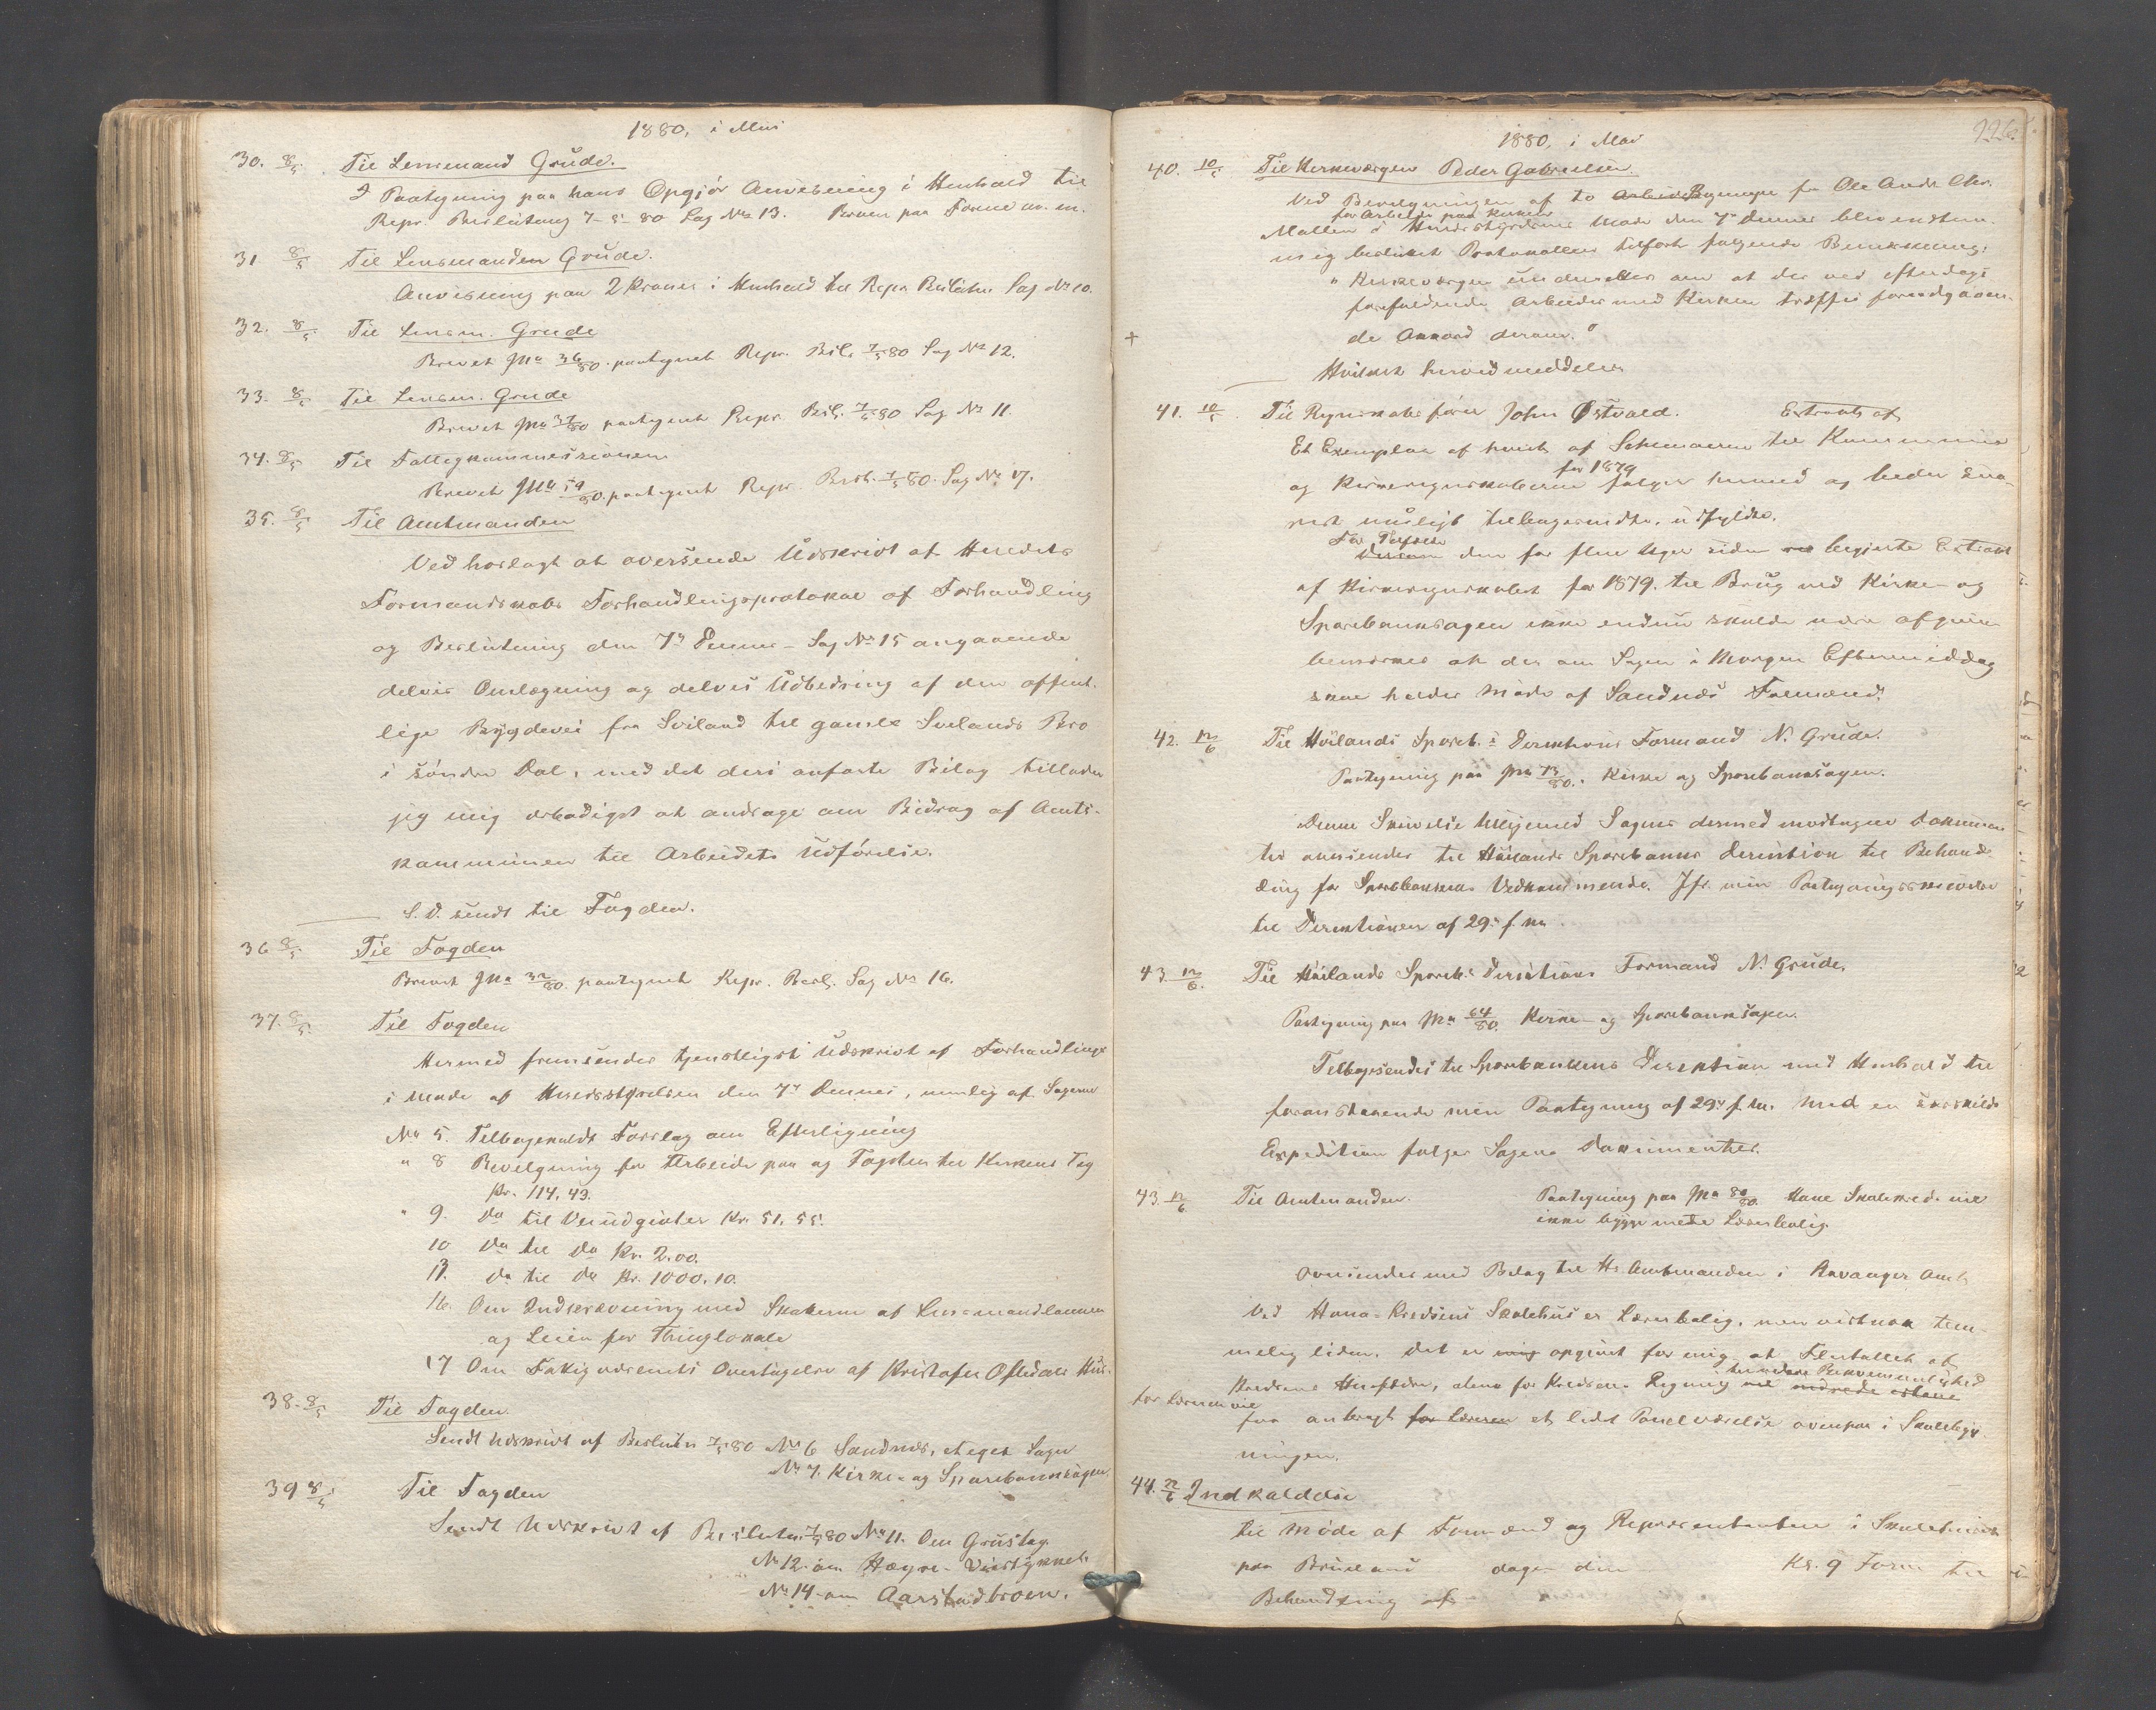 1880, i Mai
30. 8/5. Til Lensmand Grude.
2 Paategning paa hans Opgjör Anvisning i Henhold til
Repr. Beslutning 7-5-80 Sag No 13.
31 8/5 Til Lensmanden Grude.
Anvisning paa 2 Kroner i Henhold til Repr. Beslutn. Sag No 10.
32. 8/5. Til Lensm. Grude
Brevet JNo 36/80. paategnet Repr. Besl. 7/5 80 Sag No 12.
33. 8/5 Til Lensm. Grude
Brevet JNo 37/80 paategnet Repr. Besl. 7/5 80 Sag No 11.
34. 8/5 Til Fattigkommissionen
Brevet JNo 59/80. paategnet Repr. Besl. 7/5 80. Sag No 17.
35. 8/5 Til Amtmanden
Ved hoslagt at oversende Udskrivt af Heredets
Formandskabs Forhandlingsprotokol af Forhandling
og Beslutning den 7de Dennes – Sag No 15 angaaende
delvis Omlægning og delvis Udbedring af den offent-
lige Bygdevei fra Sviland til gamle Svilands Bro
i söndre Dal, med det deri anførte Bilag tillader
jeg mig ærbødigst at andrage om Bidrag af Amts-
kommunen til Arbeidets Udförelse.
S. D. sendt til Fogden.
36 8/5 Til Fogden
Brevet JNo 32/80. paategnet Repr. Besl. Sag No 16.
37. 8/5. Til Fogden
Hermed fremsendes tjenstligst Udskrivt af Forhandlinge
i Møde af Heredsstyrelsen den 7de Dennes, nemlig af Sagerne
No 5. Tilbagekaldt Forslag om Efterligning
" 8 Bevilgning for Arbeide paa og Tagsten til Kirkens Tag
Kr. 114,43.
" 9. Do til Veiudgivter Kr. 51,55.
10 Do til Do Kr. 2.00.
13. Do til Do Kr. 1000.10.
16. Om Indkrævning med Skatterne af Lensmandlønnen
og Leien for Thinglokale
17 Om Fattigvæsenets Overtagelse af Kristofer Oftedals Hus.
38. 8/5 Til Fogden
Sendt Udskrivt af Beslutn 7/5 80 No 6 Sandnes, et eget Sogn
No 7. Kirke- og Sparebanksagen.
39 8/5. Til Fogden
Sendt Udskrivt af Beslutn. 7/5 80 No 11. Om Grustag.
No 12. om Høgre- Veistykket.
No 14. om Aarstadbroen.
1880, i Mai
226.
40. 10/5 Til Kirkeværgen Peder Gabrielsen.
Ved Bevilgningen af to Regninger fra Ole Andr. Chr.
for Arbeide paa Kirken
Møllen i Heredsstyrelsens Møde den 7de Dennes blev endstem-
mig besluttet Protokollen tilført følgende Bemærkning:
" Kirkeværgen underrettes om at der ved efterdags
forefaldende Arbeider med Kirken træffes foreudgaaen-
+ de Akkord derom."
Hvilket herved meddeles
41. 10/5. Til Regnskabsfører John Østvold. Extrakt af
Et Exemplar af hvert af Schemaerne til Kommune
for 1879
og Kirkeregnskaberne følger hermed og bedes sna-
rest muligt tilbagesendte, udfyldte.
den for flere Uger siden begjerte Extrakt
af Kirkeregnskabet for 1879. til Brug ved Kirke- og
Sparebanksagen ikke endnu skulde være afgiven
bemærkes at der om Sagen i Morgen Eftermiddag
skal holdes Møde af Sandnæs Formænd.
42. 12/6 Til Höilands Spareb.s Direktions Formand N. Grude.
Paategning paa JNo 73/80. Kirke og Sparebanksagen.
Denne Skrivelse tilligemed Sagens dermed modtagne Dokumen
ter oversendes til Höilands Sparebanks Direktion til Behand-
ling for Sparebankens Vedkommende. Jfr. min Paategningsskrivelse
til Direktionen af 29de f. M.
43. 12/6. Til Höilands Spareb.s Direktions Formand N. Grude.
Paategning paa JNo 64/80. Kirke- og Sparebanksagen.
Tilbagesendes til Sparebankens Direktion med Henhold til
foranstaaende min Paategning af 29de f. M. Med en særskilt
Expedition følger Sagens Dokumenter.
43. 12/6 Til Amtmanden. Paategning paa JNo 80/80. Hane Skolekreds vil
ikke bygge mere Lærerbolig.
Oversendes med Bilag til Hr. Amtmanden i Stavanger Amt
Ved Hana-Kredsens Skolehus er Lærerbolig, men vistnok tem-
melig liden. Det er opgivet for mig at Flertallet af
til videre Bekvemmelighed
Kredsens Husfædre, alene for Kredsens Regning
for Læreren vil
faa anbragt for Læreren et lidet Panelværelse ovenpaa i Skolebyg-
ningen.
44. 12/6 Indkaldelse
til Møde af Formænd og Repræsentanter i Skolehuset
paa Brueland dagen den Kl. 9 Form. til
Behandling af